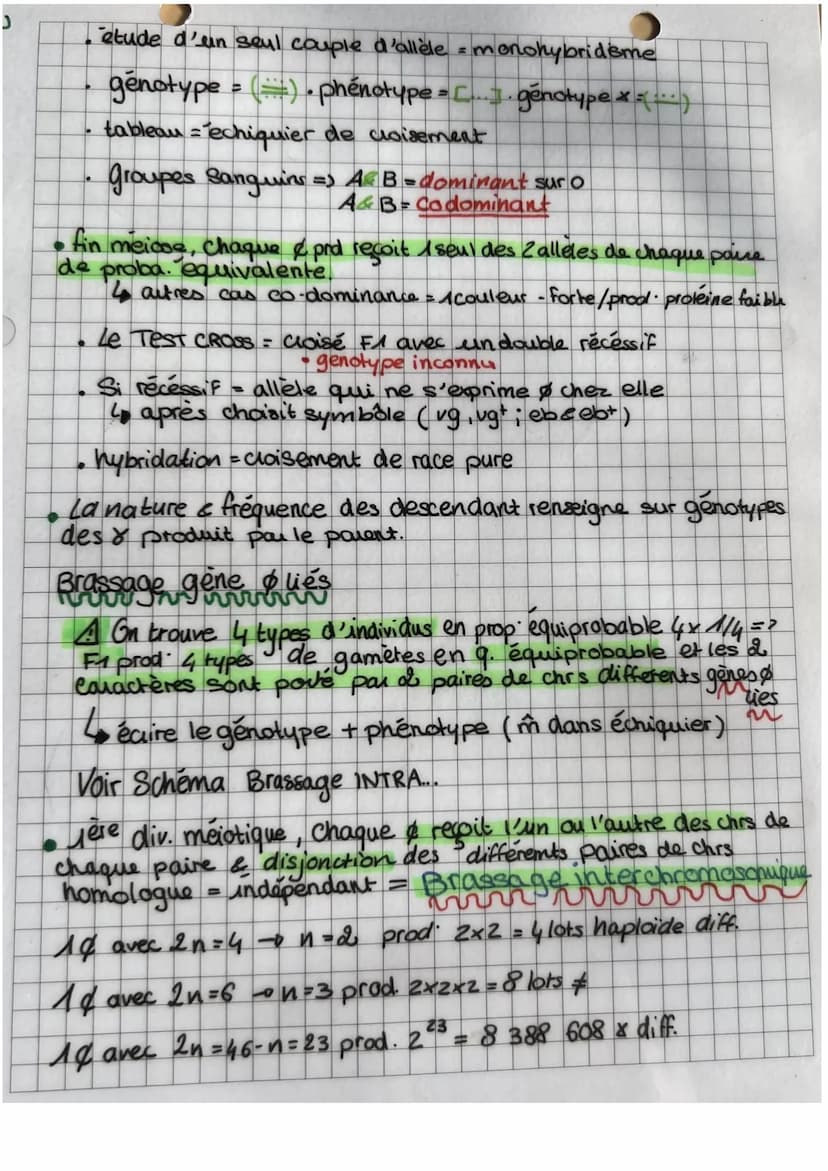 . étude d'un seul couple d'allèle = monohybridisme
. génotype = (...) . phénotype = [...] . génotype ɤ = (...)
. tableau = échiquier de croisement
. groupes sanguins => A & B = dominant sur O
A & B = codominant
• fin méiose, chaque ¢ prd reçoit 1 seul des 2 allèles de chaque paire
de proba. équivalente.
↳ autres cas co-dominance = 1 couleur - forte/prod. protéine faible
. Le TEST CROSS = croisé F1 avec un double récéssif
• genotype inconnu
. Si récéssif = allèle qui ne s'exprime ∅ chez elle
↳ après choisit symbôle (vg, vg+ ; eb & eb+)
. hybridation = croisement de race pure
• La nature & fréquence des descendant renseigne sur génotypes
des ɤ produit par le parent.
Brassage gène ∅ liés
⚠ On trouve 4 types d'individus en prop. équiprobable 4x 1/4 =>
F1 prod. 4 types de gamètes en q. équiprobable et les 2
caractères sont porté par 2 paires de chrs differents gènes ∅
liés
↳ écrire le génotype + phénotype (m̂ dans échiquier)
Voir Schéma Brassage INTRA...
• 1ère div. méiotique, chaque ¢ reçoit l'un ou l'autre des chrs de
chaque paire & disjonction des différents paires de chrs
homologue = indépendant = Brassage interchromosomique
1 ¢ avec 2n=4 → n=2 prod. 2x2 = 4 lots haploïde diff.
1 ¢ avec 2n=6 → n=3 prod. 2x2x2 = 8 lots ≠
1 ¢ avec 2n=46 - n=23 prod. 2²³ = 8 388 608 ɤ diff.